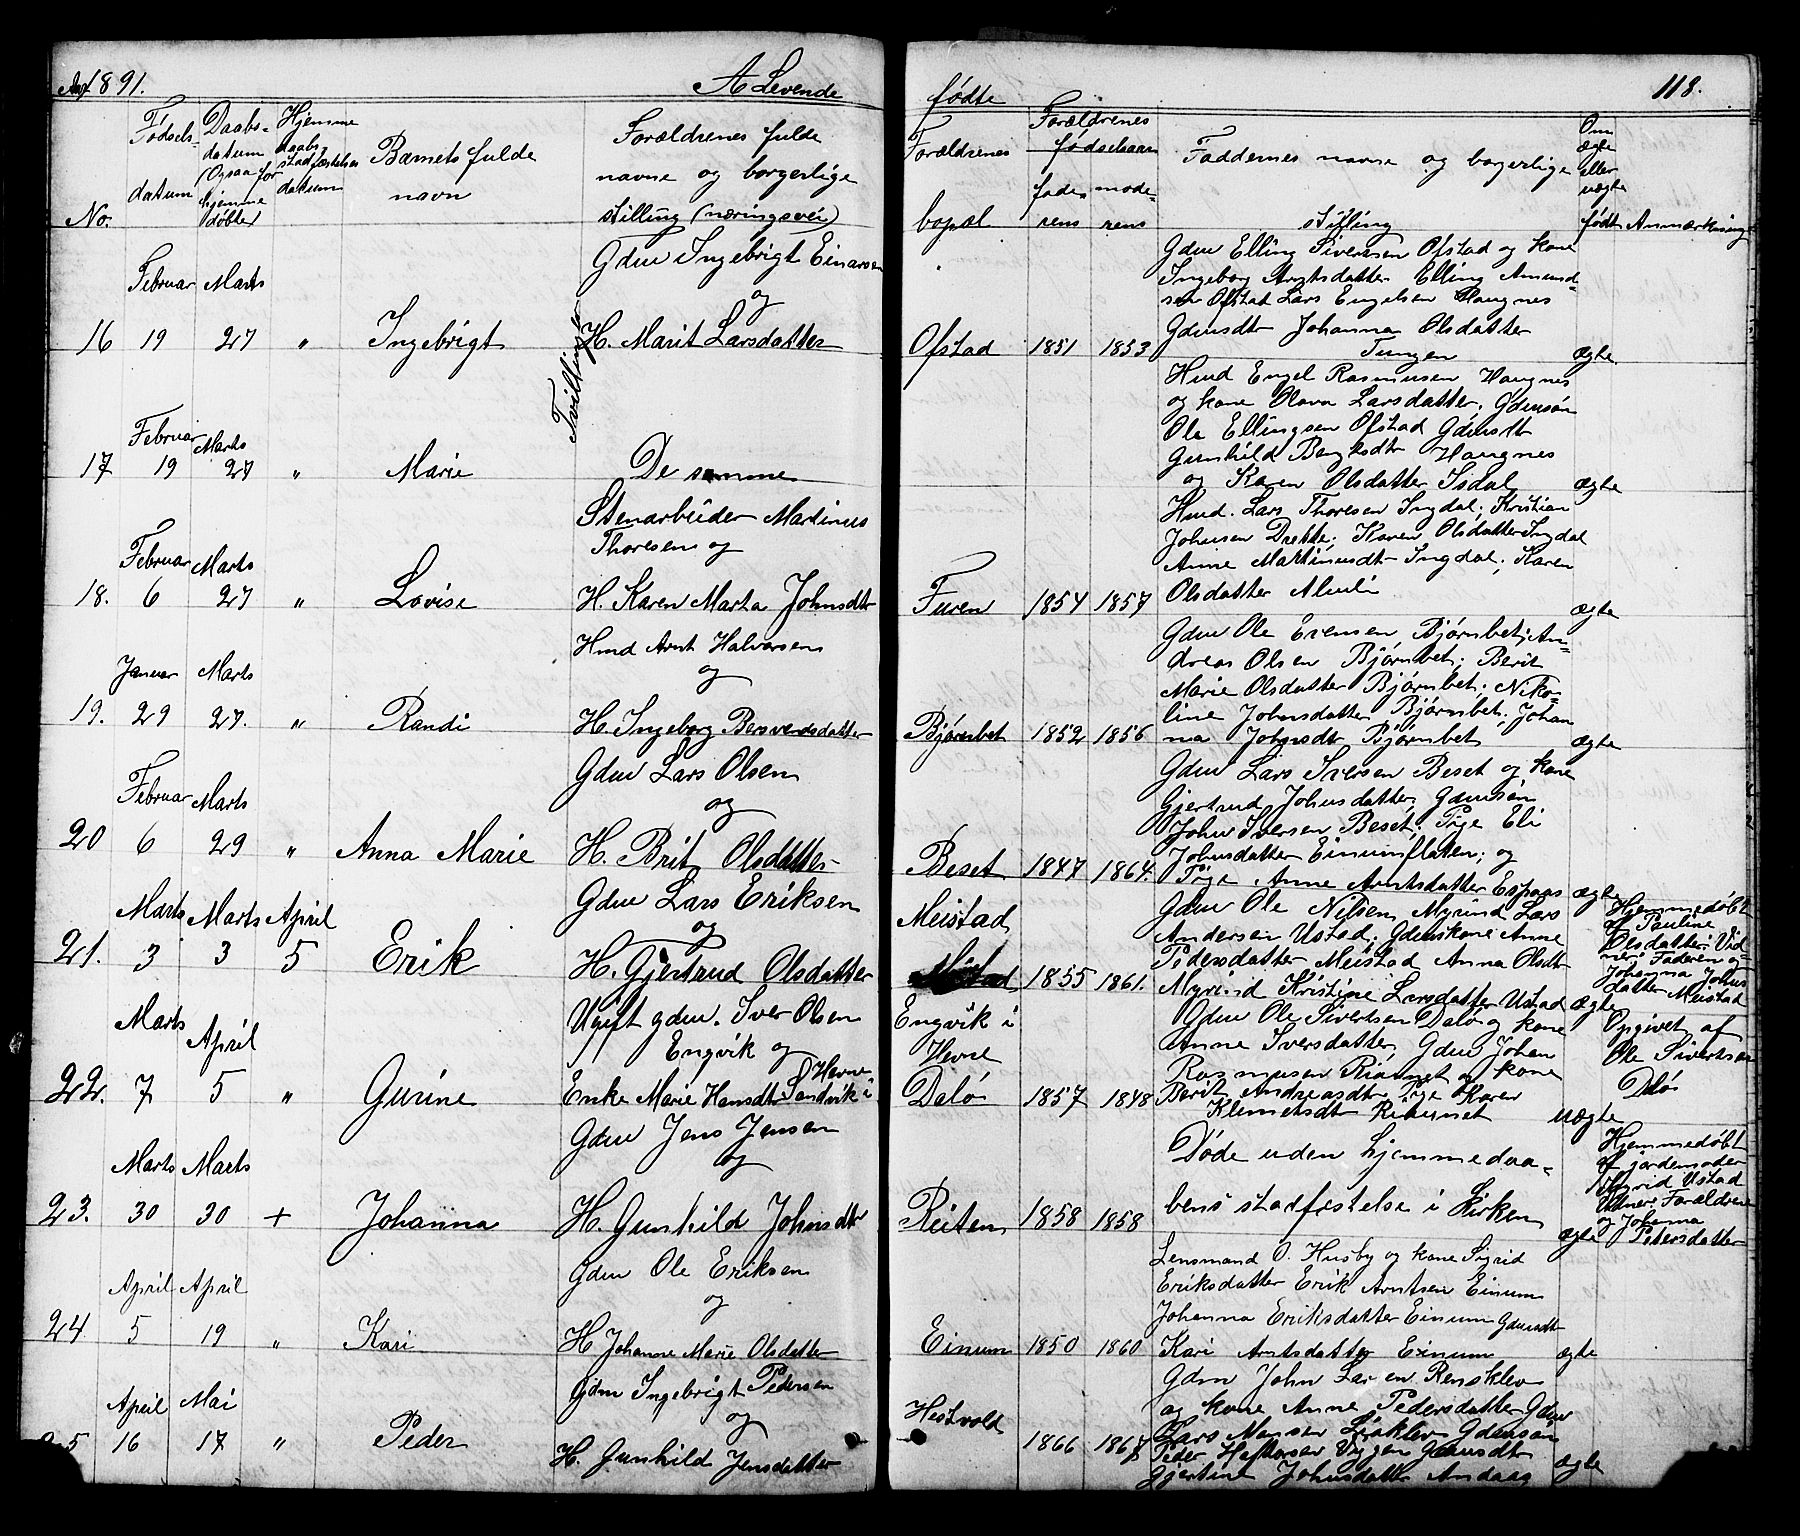 Aar 1891.
A Levende
fødte
118.
No.
Fødsels
datum
Daabs-
datum
(Ogsaa for
hjemme
døbte)
Hjemme
daabs
stadfæstelses
datum
Barnets fulde
navn
Forældrenes fulde
navne og borgerlige
stilling (næringsvei)
Forældrenes
bopæl
Forældrenes
fødselsaar
fade-
rens
mode-
rens
Faddernes navne og borgerlige
stilling
Om
ægte
eller
uægte
født
Anmærkning
Februar Marts
16 19 27 " Ingebrigt
Tvillinger
Gdm Ingebrigt Einarsen
og
H. Marit Larsdatter
Ofstad 1851 1853
Gdm Elling Sivertsen Ofstad og kone
Ingeborg Arntsdatter Elling Amund-
sen Ofstad Lars Engelsen Haugnes
Gdmsdtr Johanna Olsdatter
Tungen
ægte
Februar Marts
17 19 27 " Marie
De samme
Hmd Engel Rasmusen Haugnes
og kone Olava Larsdatter. Gdmsøn
Ole Ellingsen Ofstad Gdmsdtr
Gunhild Haugnes
og Karen Olsdatter Isdal
ægte
Februar Marts
18. 6 27 " Lovise
Stenarbeider Martinus
Thoresen og
H. Karen Marta Johnsdtr
Furen 1854 1857
Hmd. Lars Thoresen Ingdal. Kristian
Johnsen Karen Olsdatter Ingdal
Anne Martinusdtr Ingdal; Karen
Olsdatter
ægte
Januar Marts
19. 29 27. " Randi
Hmd Arnt Halvorsen
og
H. Ingeborg Bersvendsdatter
Bjørnbet 1852 1856
Gdm Ole Evensen Bjørnbet; An-
dreas Olsen Bjørnbet; Berit
Marie Olsdatter Bjørnbet; Niko-
line Johnsdatter Bjørnbet; Johan
na Johnsdtr Bjørnbet
ægte
Februar Marts
20 6 29 " Anna Marie
Gdm Lars Olsen
og
H. Brit Olsdatter
Beset 1847 1864.
Gdm Lars Iversen Beset og kone
Gjertrud Johnsdatter, Gdmsøn
John Iversen Beset. Pige Eli
Johnsdatter Einumflaten; og
Pige Anne Arntsdatter Espaas
ægte
Marts Marts April
21. 3 3 5 Erik
Gdm Lars Eriksen
og
H. Gjertrud Olsdatter
Meistad
1855 1861.
Gdm Ole Nilsen Myrind Lars
Andersen Ustad. Gdmskone Anne
Pedersdatter Meistad Anna Olsdtr
Myrind Kristine Larsdatter Ustad
ægte
Hjemmedøbt
af Pauline
Olsdatter. Vid
ner: Faderen og
Johanna Johns
datter Meistad
Marts April
22. 7 5 " Gurine
Ugift gdm. Iver Olsen
Engvik og
Enke Marie Hansdtr Sandvik i
Hevne
Engvik i
Hevne
Dalø 1857 1848
Gdm Ole Sivertsen Dalø og kone
Anne Iversdatter, Gdm Johan
Rasmusen og kone
Berit Andreasdtr Pige Karen
Klemetsdtr
uægte
Opgivet af
Ole Sivertsen
Dalø
Marts Marts
23. 30 30 + Johanna
Gdm Jens Jensen
og
H. Gunhild Johnsdtr
Reiten 1858 1858
Døde uden hjemmedaa-
bens stadfæstelse i Kirken
ægte
Hjemmedøbt
af jordemoder
Ingrid Ustad
Vidner: Forældrene
og Johanna
Petersdatter
April April
24 5 19 " Kari
Gdm Ole Eriksen
og
H Johanne Marie Olsdatter
Einum 1850 1860
Lensmand O. Husby og kone Sigrid
Eriksdatter Erik Arntsen Einum
Johanna Eriksdatter Einum Gdmsdtr
Kari Arntsdatter Einum
ægte
April Mai
25 16 17 " Peder
Gdm Ingebrigt Pedersen
og
H. Gunhild Jensdatter
Hestvold 1866 1867
Gdm John Larsen Rensklev
og kone Anne Pedersdatter Gdm
Lars Gdmsøn
Peder Viggen Gdmsdtr
Gjertine Johnsdatter
ægte